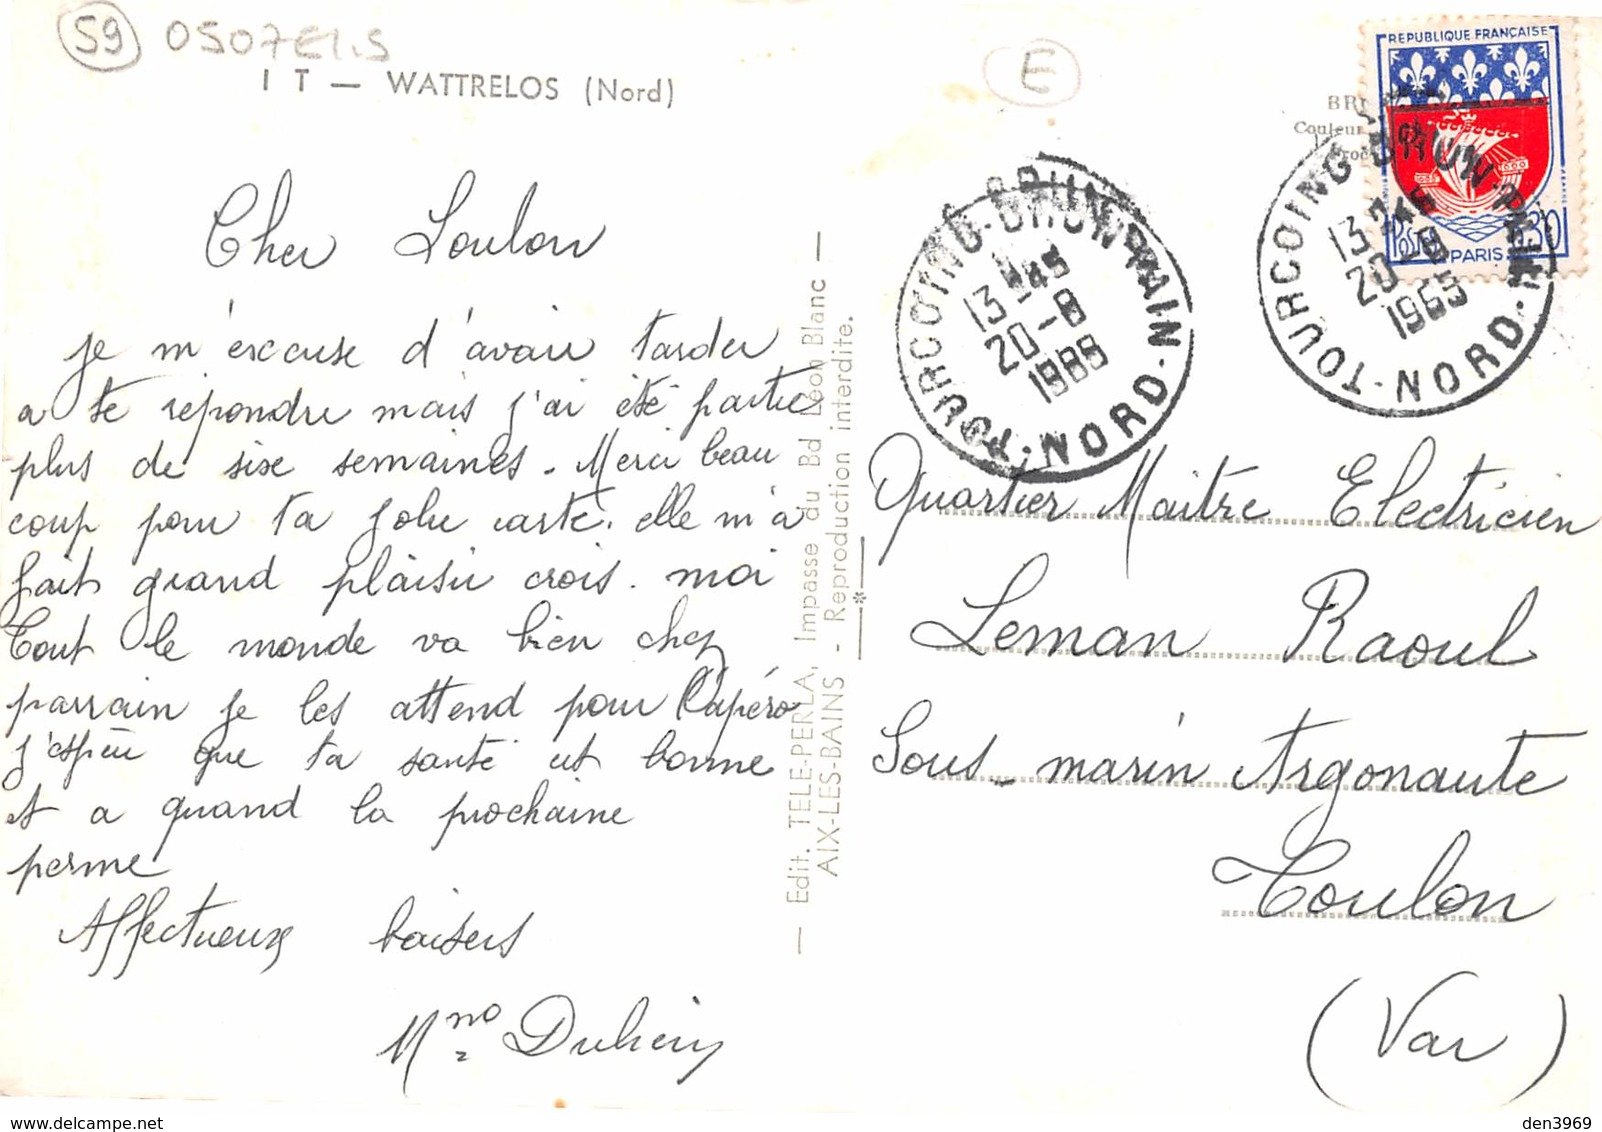 59 0507E1.S
I T — WATTRELOS (Nord)
E
Cher Loulou
je m'excuse d'avoir tarder
a te répondre mais j'ai été partie
plus de six semaines. Merci beau
coup pour ta jolie carte. elle m'a
fait grand plaisir crois. moi
Tout le monde va bien chez
parrain je les attend pour l'apéro
j'espère que ta santé est bonne
et a quand la prochaine
perme
Affectueux baisers
— Edit. TELE-PERLA, Impasse du Bd Léon Blanc —
AIX-LES-BAINS - Reproduction interdite.
*
BR
Couleur
TOURCOING-BRUN PAIN
13H45
20-8
1965
NORD
TOURCOING-BRUN-PAIN
13H45
20-8
1965
NORD
REPUBLIQUE FRANÇAISE
Postes PARIS 0,30
Quartier Maitre Electricien
Leman Raoul
Sous-marin Argonaute
Toulon
(Var)
den3969